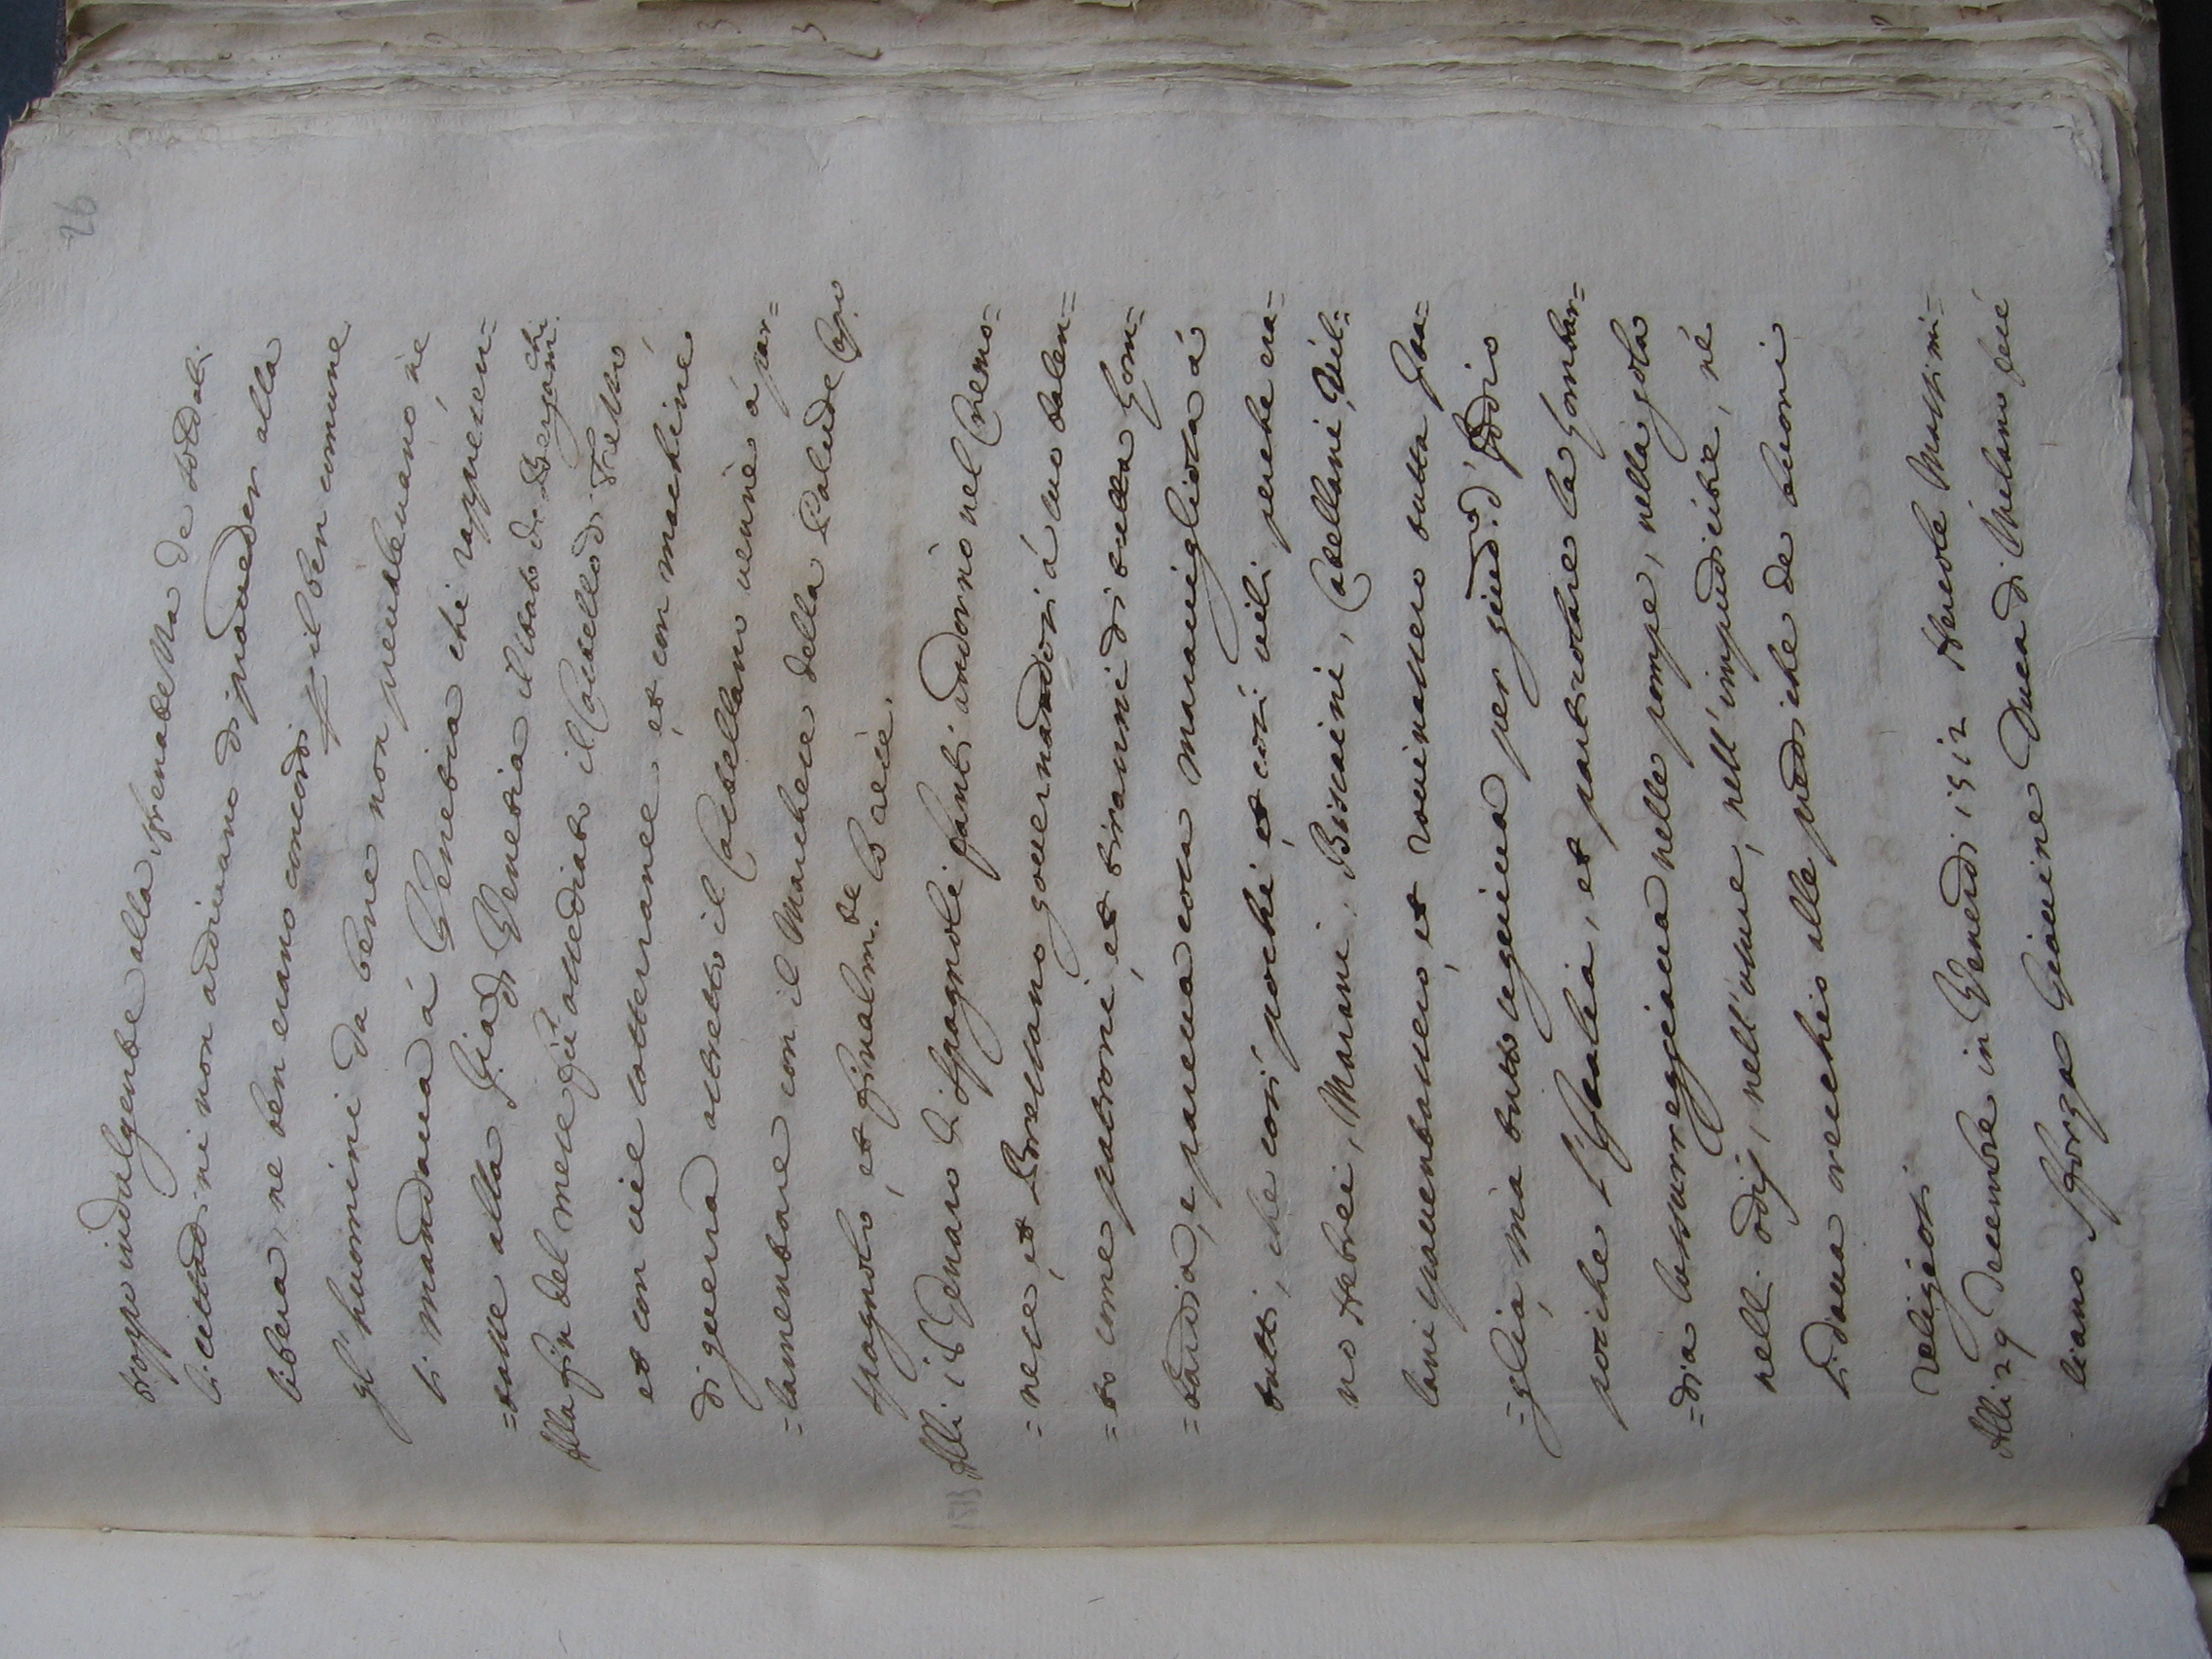 26
troppo indulgente alla sfrenatezza de soldati
li cittadini non ardivano di proveder alla
libera, ne ben erano concordi p il ben comune
gl'huomini da bene non prevalevano, ne
si mandava à Venetia chi rappresen=
=tasse alla Sig.ria di Venetia il stato de Bergam.chi
Alla fin del mese fù assediato il Castello di Trezzo
et con vie sotterranee, et con machine
di guerra astretto il Castellano venne à par=
=lamentare con il Marchese della Palude Cap.o
spagnolo, et finalm.te lo cesse.
1513 Alli 16 Genaro li spagnoli fanti andorno nel Cremo=
=nese, et Bressano governandosi à suo talen=
=to come patroni, et tiranni di tutta Lom=
=bardia, e pareva cosa maravigliosa à
tutti, che così pochi, et così vili, perche era=
no Hebrei, Marani, Biscaini, Catellani, Sicil=
lani spaventassero, et rovinassero tutta Ita=
=glia, ma tutto seguiva per giud.o d'Iddio
poiche l'Italia, et particolare la Lombar=
=dia lussureggiava nelle pompe, nella gola
nelli odij, nell'usure, nell'impudicitie, né
si dava orecchio alle prediche de buoni
religiosi
Alli 29 Decembre in Venerdi 1512 Hercole Massimi=
liano Sforza Giovine Duca di Milano fece